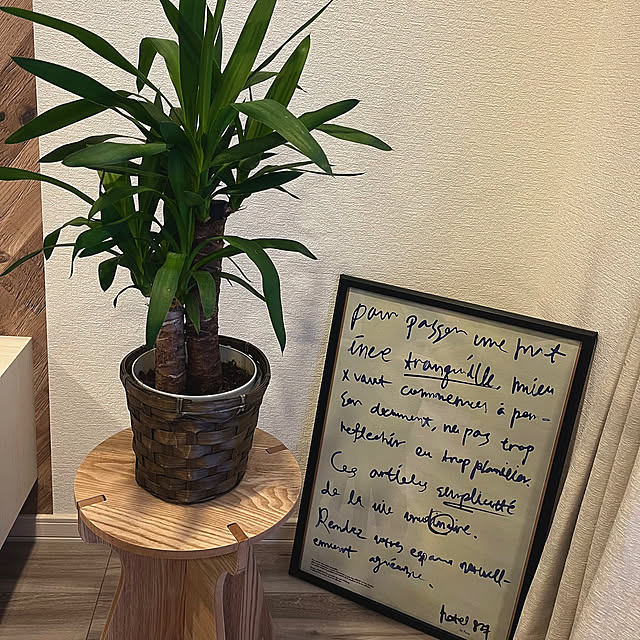 pour passer une nuit
inée tranquille, mieu
x vaut commencer à pen-
ser doucement, ne pas trop
reflechir ou trop planifier.
Ces articles simplicité
de la vie
Rendez votre espace
ement agréable.
hotel